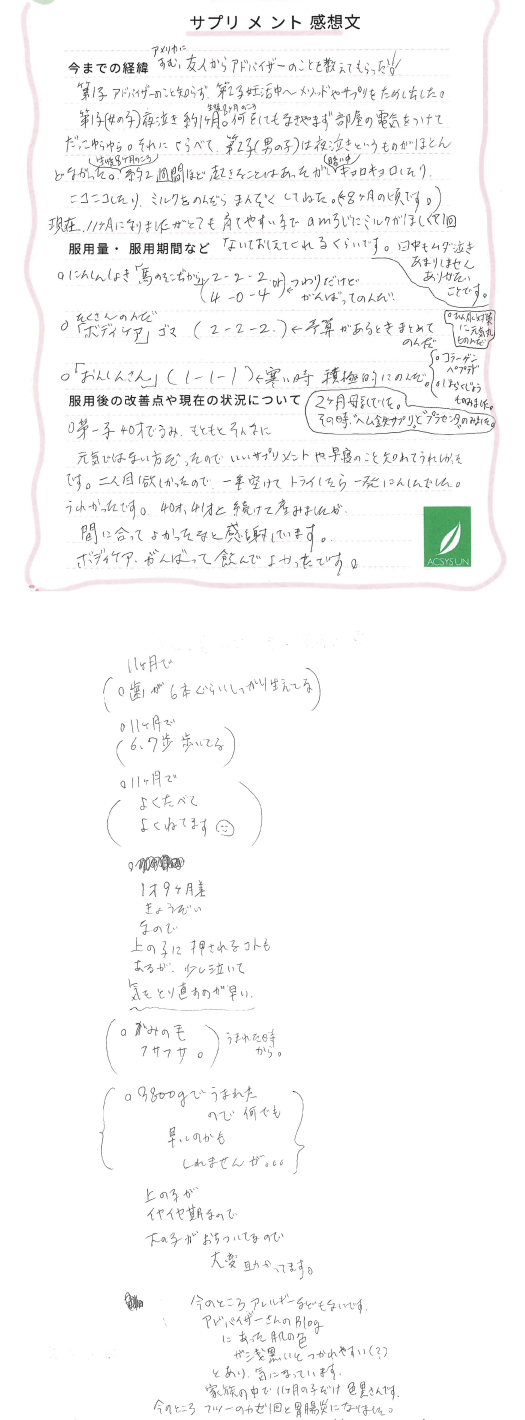 サプリメント感想文
今までの経緯 アメリカにすむ、友人からアドバイザーのことを教えてもらった!!
第1子 アドバイザーのこと知らず 第2子妊活中〜メソッドやサプリをため し出した。
第1子(女の子)夜泣き 約1ヶ月。何をしてもなきやまず 部屋の電気をつけて
だっこゆらゆら。それにくらべて、第2子(男の子)は夜泣きというものがほとん
どなかった。約2週間ほど 起きることはあったがキョロキョロしたり
ニコニコしたり、ミルクをのんだら まんぞくしてねた。(8ヶ月の頃です。)
現在、11ヶ月になりましたがとても 育てやすい子で am5じにミルクがほしくて1回
服用量・服用期間など ないておしえてくれるくらいです。日中もムダ泣き
あまりしません
ありがたい
ことです。
○にんしんしょき「馬の
2-2-2 or
4-0-4
←つわりだけど
がんばってのんだ。
○たくさんのんだ
「ボディケア」ゴマ (2-2-2) ←予算があるときまとめて
のんだ
○「おんしんさん」(1-1-1)←寒い時 積極的にのんだ。
○コラーゲン
ペプチド
服用後の改善点や現在の状況について
2ヶ月母乳でした。
その時、"ヘム鉄サプリ"と"プラセンタ"のみました。
○第一子40才でうみ、もともとそんなに
元気ではない方だったので いいサプリメントや早寝のこと知れてうれしかった
です。二人目欲しかったので、一年空けて トライしたら 一発にんしんでした。
うれしかったです。40才、41才と続けて産みましたが、
間に合ってよかったなと感謝しています。
ボディケア、がんばって飲んでよかったです。
ACSYSUN
11ヶ月で
○歯が6本ぐらいしっかり生えてる
○11ヶ月で
6、7歩 歩いてる
○11ヶ月で
よくたべて
よくねてます
1才9ヶ月差
きょうだい
なので
上の子に押されるコトも
あるが、少し泣いて
気をとり直すのが早い。
○かみの毛
フサフサ。
うまれた時
から。
○3800gでうまれた
ので 何でも
早いのかも
しれませんが。。。
上の子が
イヤイヤ期なので
大変助かってます。
今のところ アレルギーなどもないです。
アドバイザーさんのBlog
にあった 肌の色
が浅黒いと つかれやすい(?)
とあり、気になっています。
家族の中で 11ヶ月の子だけ 色黒さんです。
今のところ フツーのカゼ1回と胃腸炎になりました。